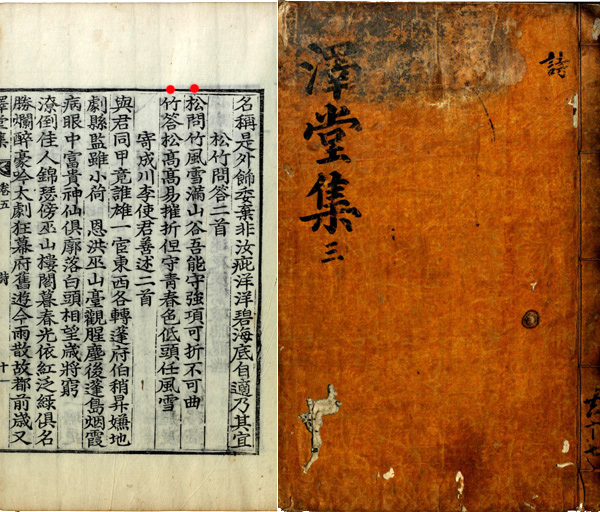 名稱是外飾委棄非汝疵洋洋碧海底自適乃其宜
松竹問答二首
松問竹風雪滿山谷吾能守強項可折不可曲
竹答松高高易摧折但守青春色低頭任風雪
寄成川李使君善述二首
與君同甲竟誰雄一宦東西各轉蓬府伯稍昇嫌地
劇縣監雖小荷 恩洪巫山臺觀腥塵後蓬島烟霞
病眼中富貴神仙俱廓落白頭相望歲將窮
潦倒佳人錦瑟傍巫山樓閣暮春光依紅泛綠俱名
勝爛醉豪吟太劇狂幕府舊遊今雨散故都前歲又
澤堂集 卷五 詩 十一
詩
澤堂集 三